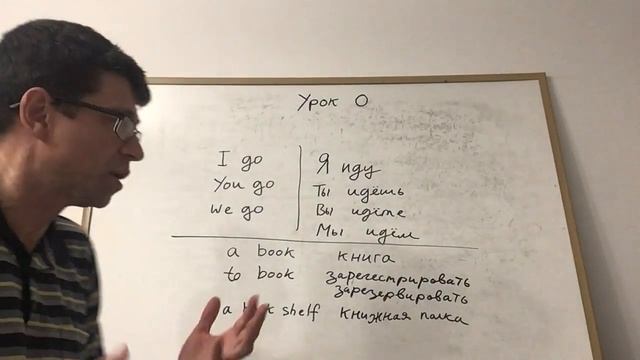 Урок 0
I go Я иду
You go Ты идёшь
We go Вы идёте
Мы идём
a book книга
to book зарегестрировать
зарезервировать
a shelf книжная полка